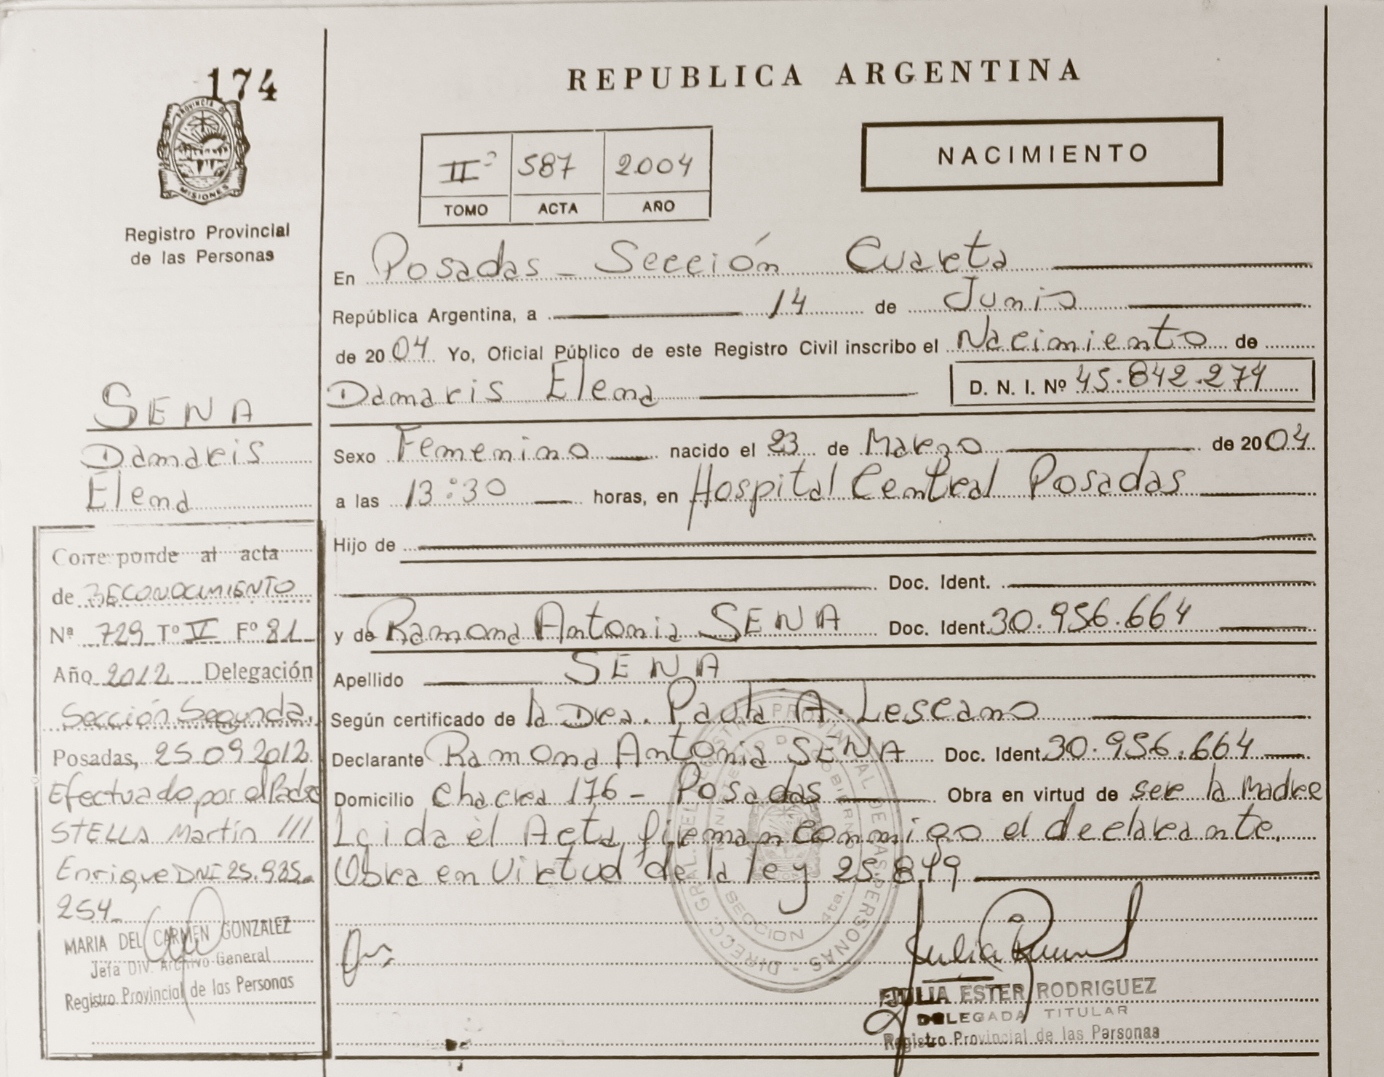 174
PROVINCIA DE
MISIONES
Registro Provincial
de las Personas
REPUBLICA ARGENTINA
II 587 2.004
TOMO ACTA AÑO
NACIMIENTO
En Posadas - Sección Cuarta
República Argentina, a 14 de Junio
de 2004 Yo, Oficial Público de este Registro Civil inscribo el Nacimiento de
Damaris Elena D. N. I. Nº 45.842.274
Sexo Femenino nacido el 23 de Marzo de 2004.
a las 13:30 horas, en Hospital Central Posadas
Hijo de
Doc. Ident.
y de Ramona Antonia SENA Doc. Ident. 30.956.664
Apellido SENA
Según certificado de la Dra. Paula A. Lescano
Declarante Ramona Antonia SENA Doc. Ident. 30.956.664
Domicilio Chacra 176 - Posadas Obra en virtud de ser la Madre
Leida el Acta, firman conmigo el declarante.
Obra en Virtud de la ley 25.849
SENA
Damaris
Elena
Corresponde al acta
de RECONOCIMIENTO
Nº 729 Tº V Fº 81
Año 2012 Delegación
Sección Segunda.
Posadas, 25 09 2012
Efectuado por el Padre
STELLA Martín
Enrique DNI 25.935.
254
MARIA DEL CARMEN GONZALEZ
Jefa Div. Archivo General
Registro Provincial de las Personas
SECCION 4ta.
JULIA ESTER RODRIGUEZ
DELEGADA TITULAR
Registro Provincial de las Personas